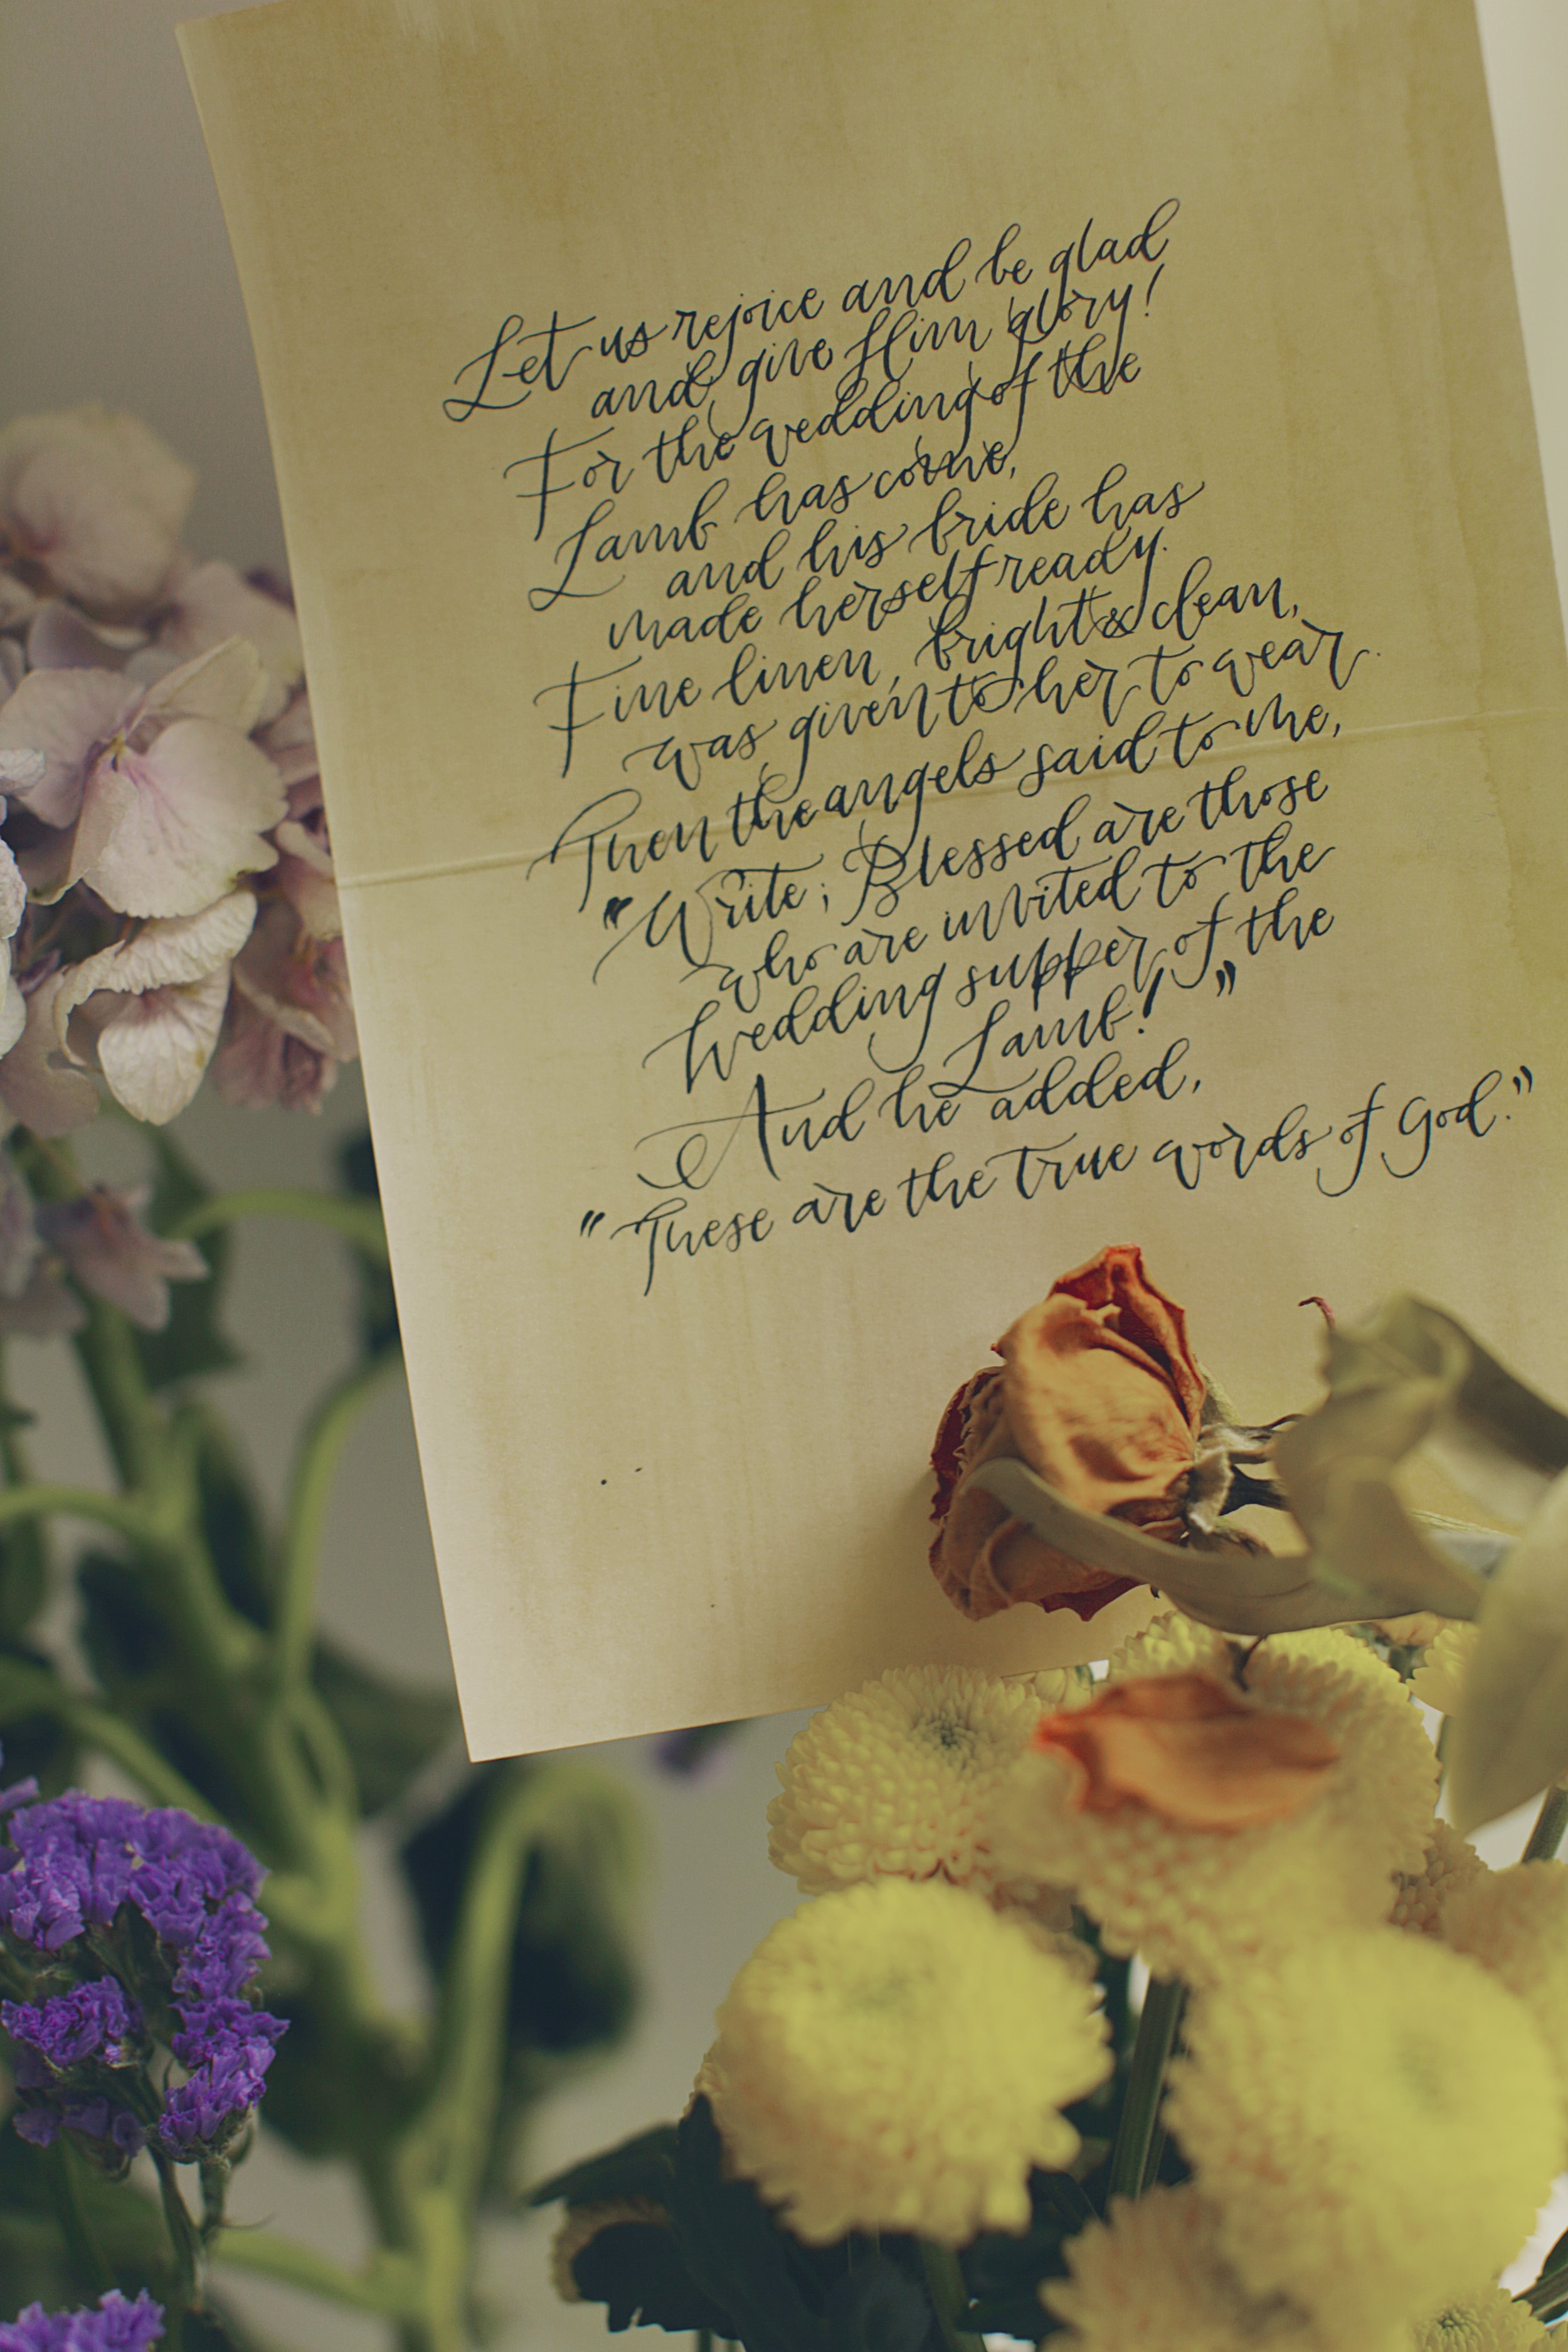 Let us rejoice and be glad
and give Him glory!
For the wedding of the
Lamb has come,
and his bride has
made herself ready.
Fine linen, bright & clean,
was given to her to wear.
Then the angels said to me,
"Write; Blessed are those
who are invited to the
Wedding supper of the
Lamb!"
And he added,
"These are the true words of God."